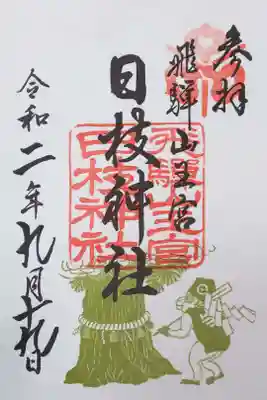 参拝
飛騨山王宮
日枝神社
令和二年九月十九日
飛騨山王宮
日枝神社